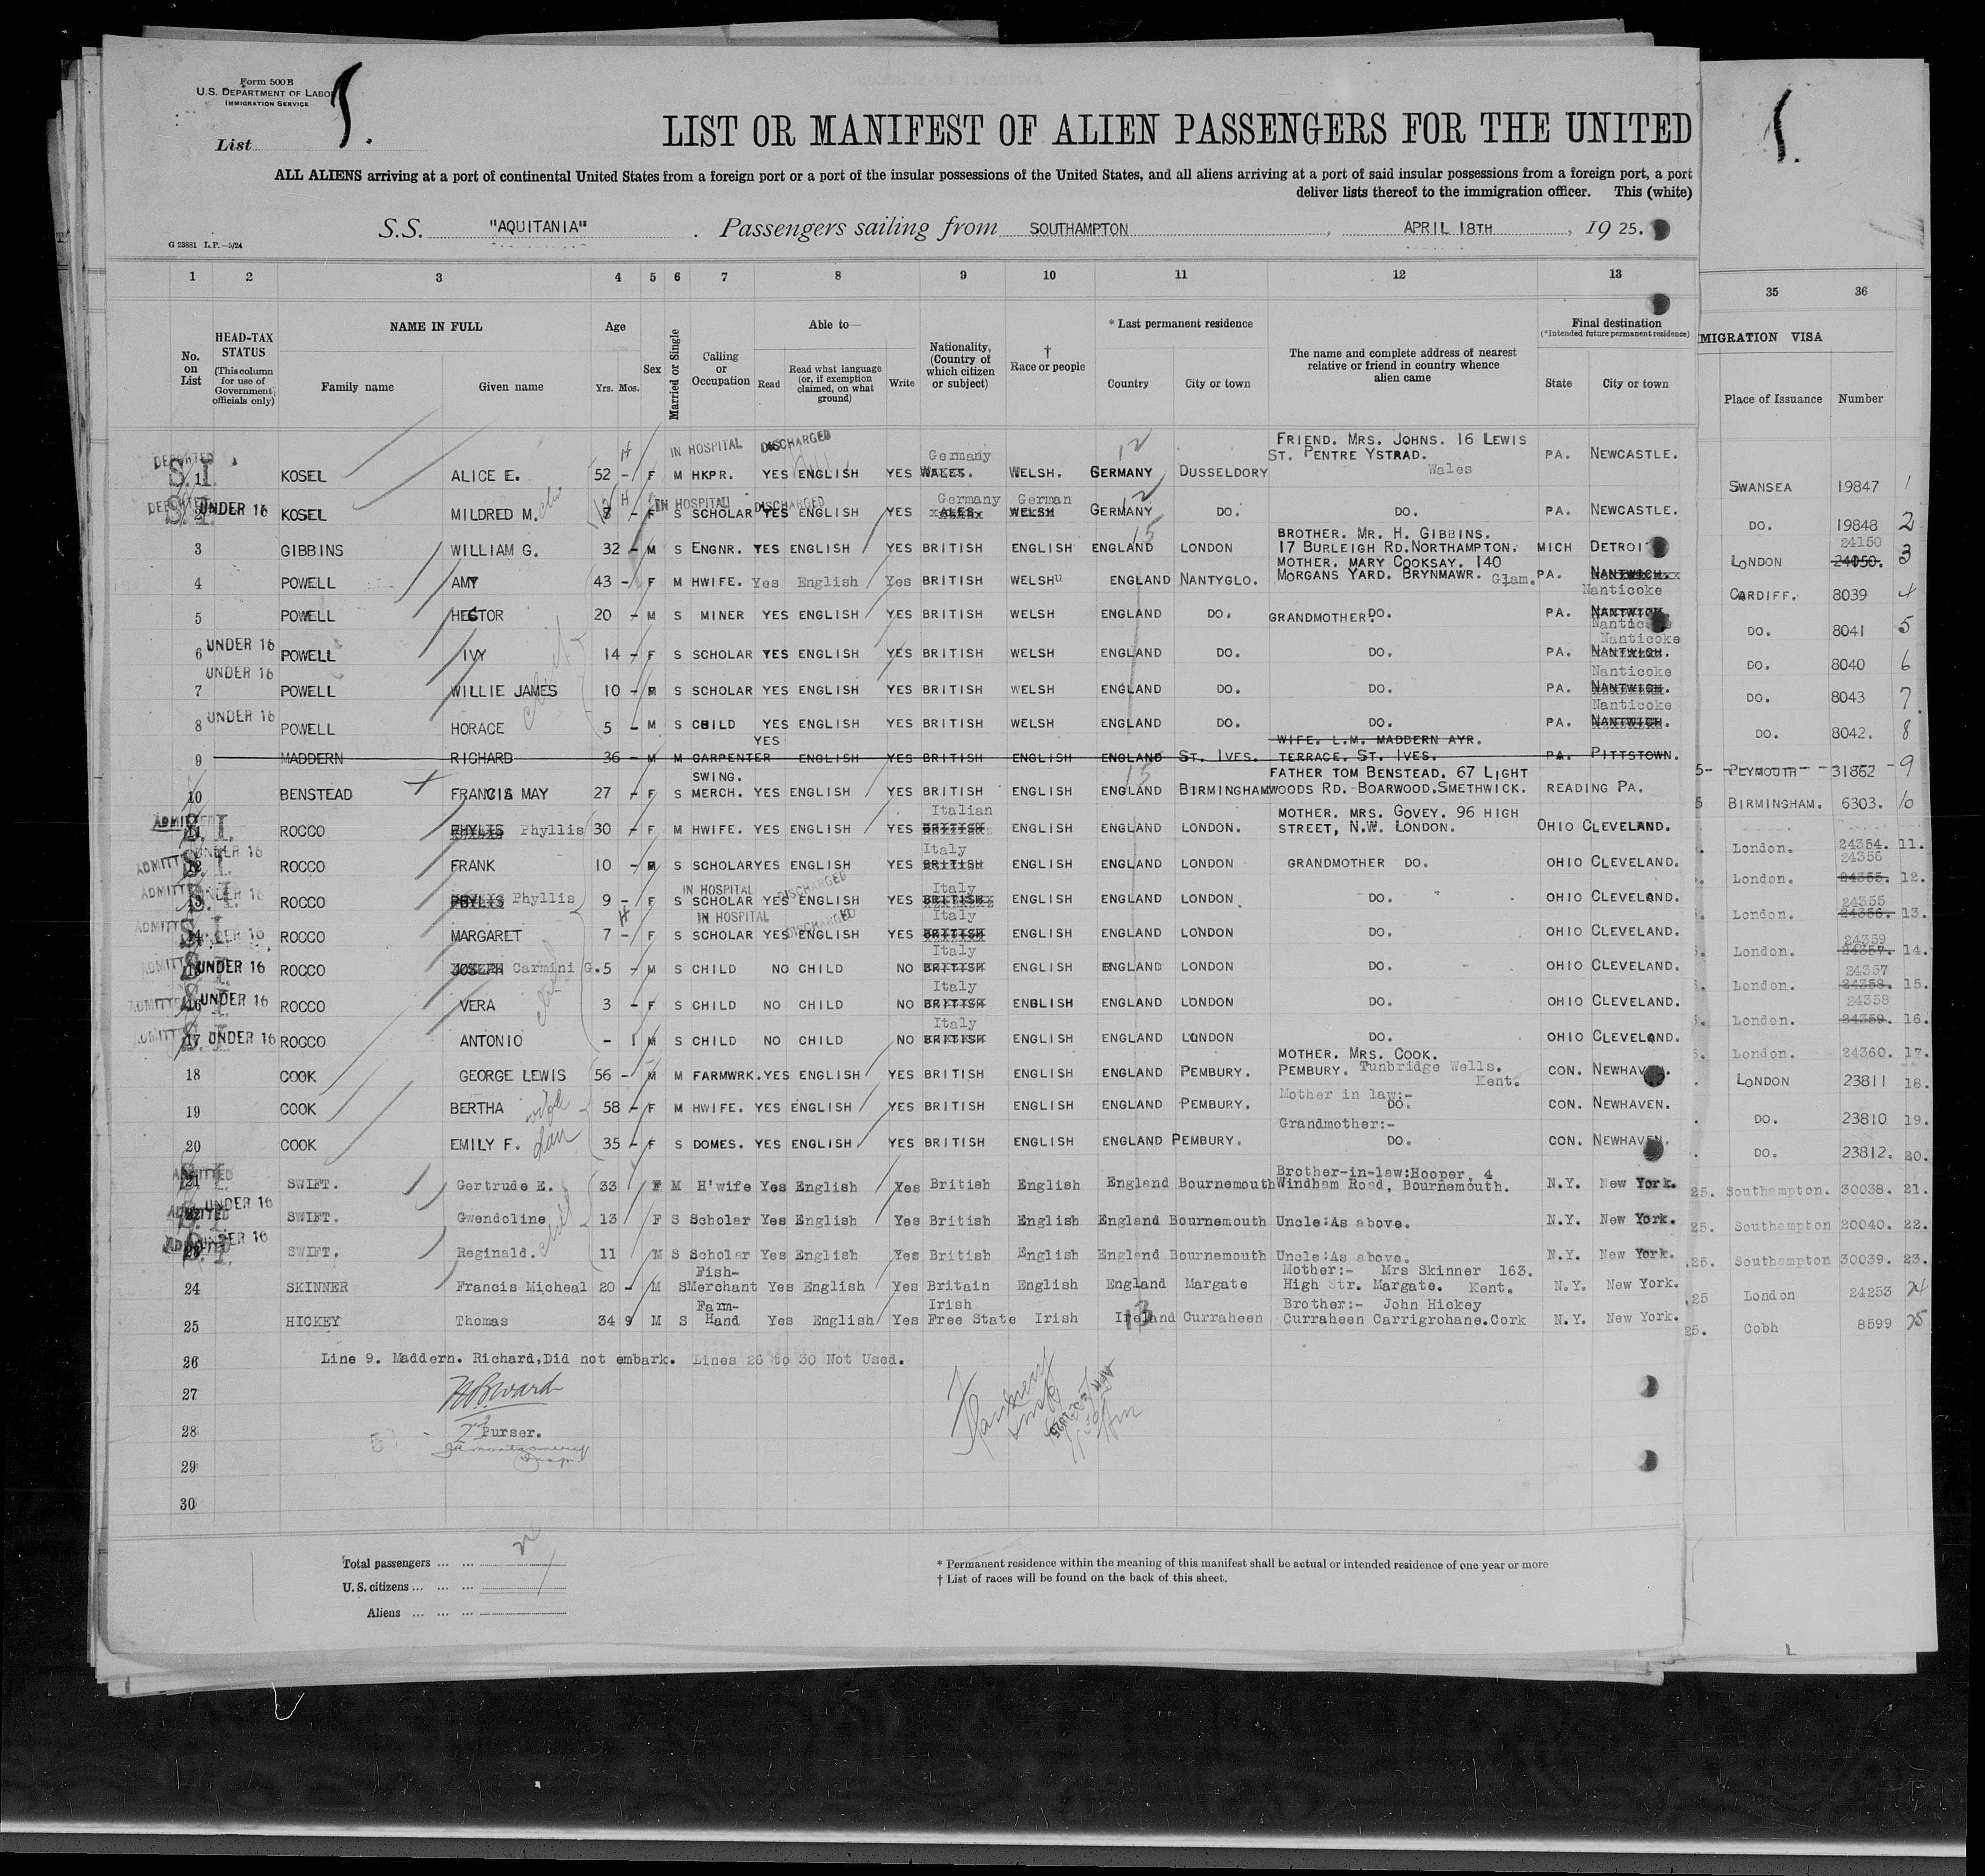 Form 500 B
U.S. DEPARTMENT OF LABOR
IMMIGRATION SERVICE
List 5.
LIST OR MANIFEST OF ALIEN PASSENGERS FOR THE UNITED
ALL ALIENS arriving at a port of continental United States from a foreign port or a port of the insular possessions of the United States, and all aliens arriving at a port of said insular possessions from a foreign port, a port
deliver lists thereof to the immigration officer. This (white)
S.S. "AQUITANIA". Passengers sailing from SOUTHAMPTON, APRIL 18TH, 19 25.
G 23881 L.P.—5/24
1 2 3 4 5 6 7 8 9 10 11 12 13 35 36
No. on List
HEAD-TAX STATUS (This column for use of Government officials only)
NAME IN FULL
Family name Given name
Age Yrs. Mos.
Sex
Married or Single
Calling or Occupation
Able to—
Read
Read what language (or, if exemption claimed, on what ground)
Write
Nationality, (Country of which citizen or subject)
† Race or people
* Last permanent residence
Country City or town
The name and complete address of nearest relative or friend in country whence alien came
Final destination
(*Intended future permanent residence)
State City or town
MIGRATION VISA
Place of Issuance Number
DEPORTED S.I. IN HOSPITAL DISCHARGED Germany FRIEND. MRS. JOHNS. 16 LEWIS
1 KOSEL ALICE E. 52 - F M HKPR. YES ENGLISH YES WALES. WELSH. GERMANY DUSSELDORY ST. PENTRE YSTRAD. Wales PA. NEWCASTLE. SWANSEA 19847 1
DEPORTED S.I. IN HOSPITAL DISCHARGED Germany German
2 UNDER 16 KOSEL MILDRED M. 8 - F S SCHOLAR YES ENGLISH YES WALES. WELSH GERMANY DO. DO. PA. NEWCASTLE. DO. 19848 2
BROTHER. MR. H. GIBBINS. 24150
3 GIBBINS WILLIAM G. 32 - M S ENGNR. YES ENGLISH YES BRITISH ENGLISH ENGLAND LONDON 17 BURLEIGH RD. NORTHAMPTON. MICH DETROIT LONDON 24050. 3
MOTHER. MARY COOKSAY. 140
4 POWELL AMY 43 - F M HWIFE. Yes English Yes BRITISH WELSH ENGLAND NANTYGLO. MORGANS YARD. BRYNMAWR. Glam. PA. NANTWICH. Nanticoke CARDIFF. 8039 4
5 POWELL HECTOR 20 - M S MINER YES ENGLISH YES BRITISH WELSH ENGLAND DO. GRANDMOTHER. DO. PA. NANTWICH Nanticoke DO. 8041 5
6 UNDER 16 POWELL IVY 14 - F S SCHOLAR YES ENGLISH YES BRITISH WELSH ENGLAND DO. DO. PA. NANTWICH. Nanticoke DO. 8040 6
7 UNDER 16 POWELL WILLIE JAMES 10 - M S SCHOLAR YES ENGLISH YES BRITISH WELSH ENGLAND DO. DO. PA. NANTWICH. Nanticoke DO. 8043 7
8 UNDER 16 POWELL HORACE 5 - M S CHILD YES ENGLISH YES BRITISH WELSH ENGLAND DO. DO. PA. NANTWICH. Nanticoke DO. 8042. 8
YES WIFE. L.M. MADDERN AYR.
9 MADDERN RICHARD 36 - M M CARPENTER ENGLISH YES BRITISH ENGLISH ENGLAND ST. IVES. TERRACE. ST. IVES. PA. PITTSTOWN. PLYMOUTH 31862 9
SWING. FATHER TOM BENSTEAD. 67 LIGHT
10 BENSTEAD FRANCIS MAY 27 - F S MERCH. YES ENGLISH YES BRITISH ENGLISH ENGLAND BIRMINGHAM WOODS RD. BOARWOOD. SMETHWICK. READING PA. BIRMINGHAM. 6303. 10
ADMITTED S.I. Italian MOTHER. MRS. GOVEY. 96 HIGH
11 ROCCO PHYLIS Phyllis 30 - F M HWIFE. YES ENGLISH YES BRITISH ENGLISH ENGLAND LONDON. STREET, N.W. LONDON. OHIO CLEVELAND. London. 24354. 11.
ADMITTED S.I. UNDER 16 Italy 24356
12 ROCCO FRANK 10 - M S SCHOLAR YES ENGLISH YES BRITISH ENGLISH ENGLAND LONDON GRANDMOTHER DO. OHIO CLEVELAND. London. 24355. 12.
ADMITTED S.I. UNDER 16 IN HOSPITAL DISCHARGED Italy 24355
13 ROCCO PHYLIS Phyllis 9 - F S SCHOLAR YES ENGLISH YES BRITISH ENGLISH ENGLAND LONDON. DO. OHIO CLEVELAND. London. 24356. 13.
ADMITTED S.I. UNDER 16 IN HOSPITAL DISCHARGED Italy 24359
14 ROCCO MARGARET 7 - F S SCHOLAR YES ENGLISH YES BRITISH ENGLISH ENGLAND LONDON DO. OHIO CLEVELAND. London. 24357. 14.
ADMITTED S.I. Italy 24357
15 UNDER 16 ROCCO JOSEPH Carmini G. 5 - M S CHILD NO CHILD NO BRITISH ENGLISH ENGLAND LONDON DO. OHIO CLEVELAND. London. 24358. 15.
ADMITTED S.I. Italy 24358
16 UNDER 16 ROCCO VERA 3 - F S CHILD NO CHILD NO BRITISH ENGLISH ENGLAND LONDON DO. OHIO CLEVELAND. London. 24359. 16.
ADMITTED S.I. Italy
17 UNDER 16 ROCCO ANTONIO - 1 M S CHILD NO CHILD NO BRITISH ENGLISH ENGLAND LONDON DO. OHIO CLEVELAND. London. 24360. 17.
MOTHER. MRS. COOK.
18 COOK GEORGE LEWIS 56 - M M FARMWRK. YES ENGLISH YES BRITISH ENGLISH ENGLAND PEMBURY. PEMBURY. Tunbridge Wells. Kent. CON. NEWHAVEN. LONDON 23811 18.
Mother in law:-
19 COOK BERTHA wife 58 - F M HWIFE. YES ENGLISH YES BRITISH ENGLISH ENGLAND PEMBURY. DO. CON. NEWHAVEN. DO. 23810 19.
Grandmother:-
20 COOK EMILY F. dau 35 - F S DOMES. YES ENGLISH YES BRITISH ENGLISH ENGLAND PEMBURY. DO. CON. NEWHAVEN. DO. 23812. 20.
ADMITTED S.I. Brother-in-law:Hooper, 4
21 SWIFT. Gertrude E. 33 F M H'wife Yes English Yes British English England Bournemouth Windham Road, Bournemouth. N.Y. New York. 25. Southampton. 30038. 21.
22 ADMITTED UNDER 16 SWIFT. Gwendoline 13 F S Scholar Yes English Yes British English England Bournemouth Uncle:As above. N.Y. New York. 25. Southampton 20040. 22.
23 ADMITTED S.I. UNDER 16 SWIFT. Reginald. 11 M S Scholar Yes English Yes British English England Bournemouth Uncle:As above. N.Y. New York. 25. Southampton 30039. 23.
Fish- Mother:- Mrs Skinner 163.
24 SKINNER Francis Micheal 20 - M S Merchant Yes English Yes Britain English England Margate High Str. Margate. Kent. N.Y. New York. .25 London 24253 24
Farm- Irish Brother:- John Hickey
25 HICKEY Thomas 34 9 M S Hand Yes English Yes Free State Irish Ireland Curraheen Curraheen Carrigrohane.Cork N.Y. New York. 25. Cobh 8599 25
26 Line 9. Maddern. Richard,Did not embark. Lines 26 to 30 Not Used.
27
28 2nd Purser.
29
30
Total passengers
U.S. citizens
Aliens
* Permanent residence within the meaning of this manifest shall be actual or intended residence of one year or more
† List of races will be found on the back of this sheet.